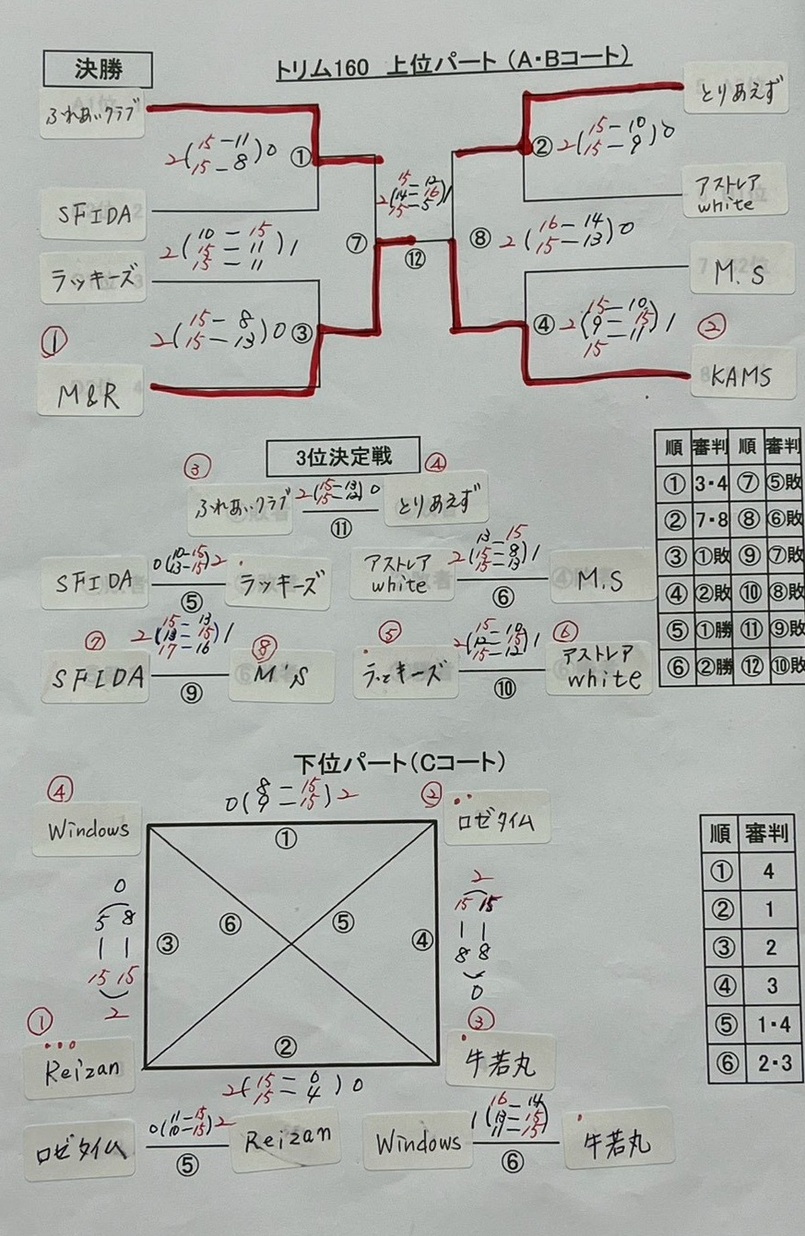 決勝
トリム160 上位パート（A・Bコート）
ふれあいクラブ
とりあえず
2(15-11 15-8)0 ①
② 2(15-10 15-9)0
SFIDA
アストレア white
2(15-12 14-16 15-5)1
2(10-15 15-11 15-11)1
⑦ ⑫ ⑧ 2(16-14 15-13)0
ラッキーズ
M.S
2(15-8 15-13)0 ③
④ 2(15-10 9-15 15-11)1
① M&R
② KAMS
3位決定戦
③ ふれあいクラブ
⑪
④ とりあえず
SFIDA 0(10-15 13-15)2 ラッキーズ
⑤
アストレア white 2(13-15 15-8 15-13)1 M.S
⑥
⑦ SFIDA 2(15-13 13-15 17-16)1 ⑧ M'S
⑨
⑤ ラッキーズ 2(15-10 12-15 15-12)1 ⑥ アストレア white
⑩
順 審判 順 審判
① 3・4 ⑦ ⑤敗
② 7・8 ⑧ ⑥敗
③ ①敗 ⑨ ⑦敗
④ ②敗 ⑩ ⑧敗
⑤ ①勝 ⑪ ⑨敗
⑥ ②勝 ⑫ ⑩敗
下位パート（Cコート）
④ Windows
0(8-15 9-15)2
①
② ロゼタイム
0
5 8
15 15
2
③ ⑥ ⑤ ④
2
15 15
8 8
0
① Reizan
②
2(15-6 15-4)0
③ 牛若丸
ロゼタイム 0(11-15 10-15)2 Reizan
⑤
Windows 1(16-14 13-15 11-15) 牛若丸
⑥
順 審判
① 4
② 1
③ 2
④ 3
⑤ 1・4
⑥ 2・3